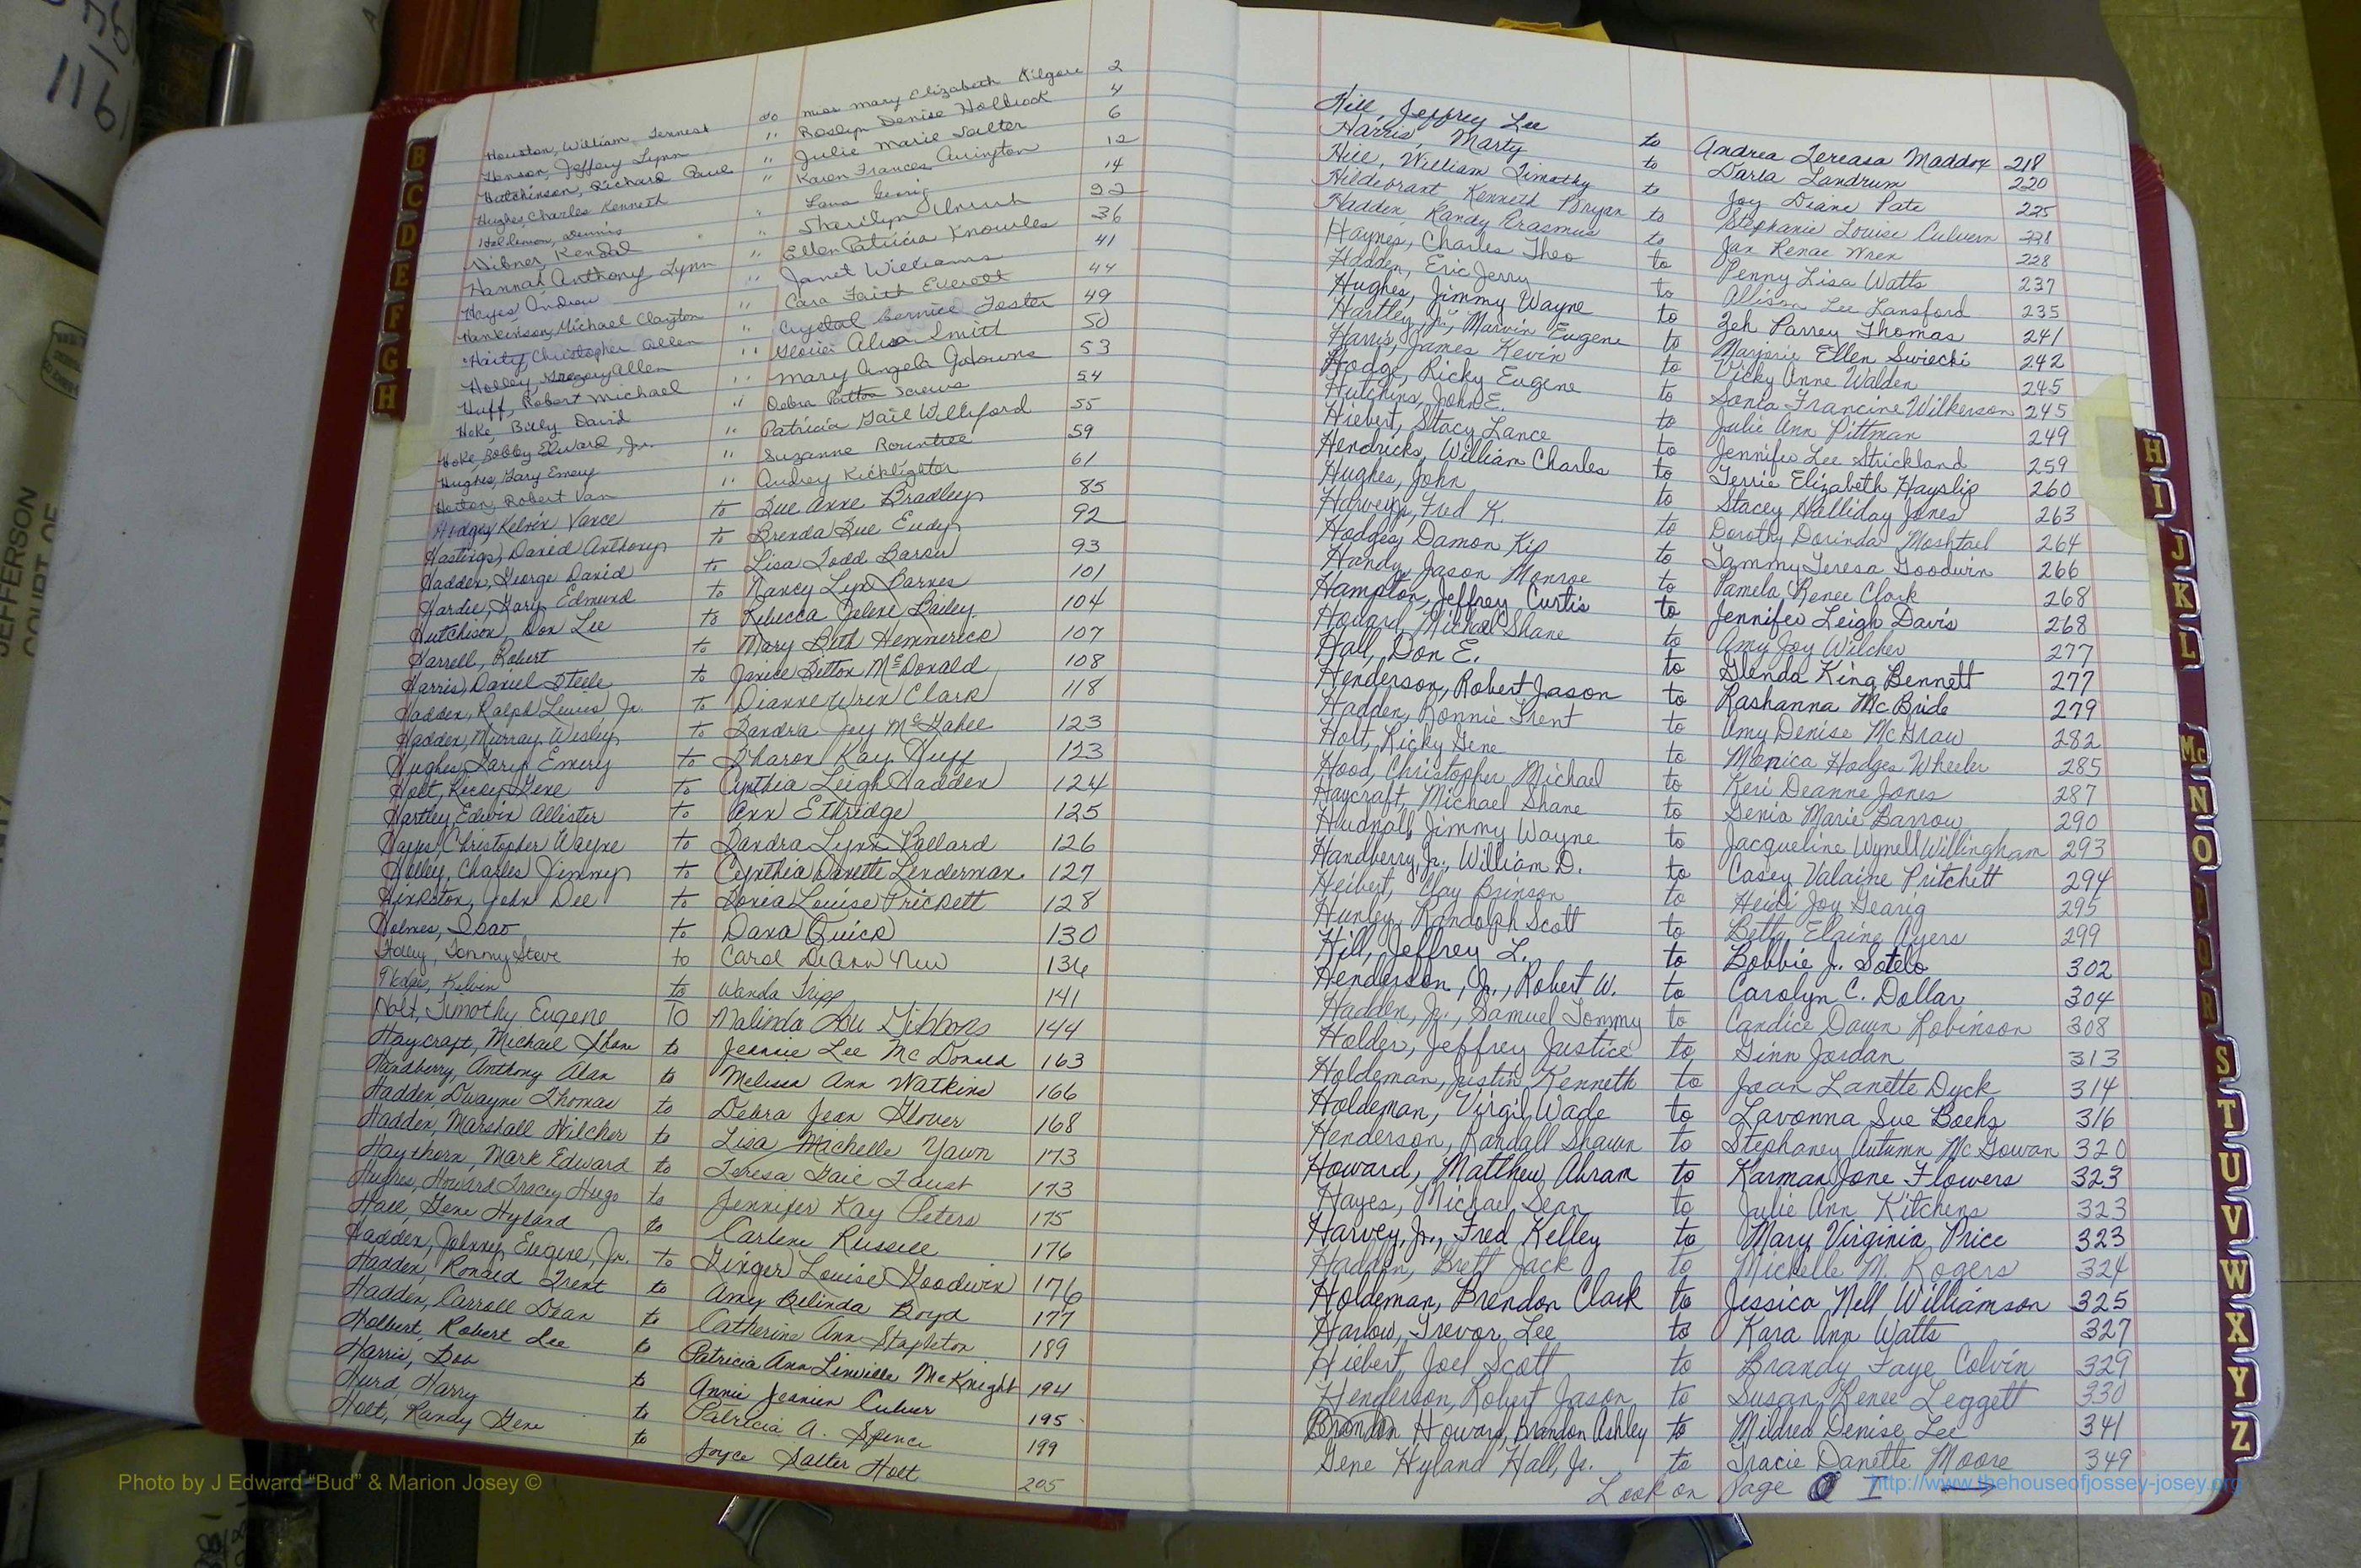 Houston, William Ternest to Miss Mary Elizabeth Kilgore 2
Henson, Jeffery Lynn " Roslyn Denise Holbrook 4
Hutchinson, Richard Paul " Julie Marie Salter 6
Hughes, Charles Kenneth " Karen Frances Arrington 12
Holdeman, Dennis " Lana 14
Hibner, Kendal " Sharilyn Unruh 22
Hannah, Anthony Lynn " Ellen Patricia Knowles 36
Hayes, Andrew " Janet Williams 41
Hankinson, Michael Clayton " Cara Faith Everett 44
Haity, Christopher Allen " Crystal Bernice Foster 49
Holley, Gregory Allen " Gloria Alisa Smith 50
Huff, Robert Michael " Mary Angela 53
Hoke, Billy David " Debra Patton Screws 54
Hoke, Bobby Edward, Jr. " Patricia Gail Williford 55
Hughes, Gary Emery " Suzanne Rountree 59
Horton, Robert Van " Audrey Kicklighter 61
Hodges, Kelvin Vance to Sue Anne Bradley 85
Hastings, David Anthony to Brenda Sue Eudy 92
Hadden, George David to Lisa Todd Barow 93
Hardie, Gary Edmund to Nancy Lyn Barnes 101
Hutchison, Don Lee to Rebecca Jolene Bailey 104
Harrell, Robert to Mary Beth Hemmerich 107
Harris, Daniel Steele to Janice Sitton McDonald 108
Hadden, Ralph Lewis, Jr. to Dianne Wren Clark 118
Hadden, Murray Wesley to Sandra Joy McGahee 123
Hughes, Gary Emery to Sharon Kay Huff 123
Holt, Ricky Gene to Cynthia Leigh Hadden 124
Hartley, Edwin Allister to Ann Ethridge 125
Hayes, Christopher Wayne to Sandra Lynn Ballard 126
Holley, Charles Jimmy to Cynthia Danette Lenderman 127
Hinkston, John Dee to Sonia Louise Prickett 128
Holmes, Isao to Dana Quick 130
Holley, Tommy Steve to Carol DeAnn New 136
Hodges, Kelvin to Wanda Tripp 141
Holt, Timothy Eugene To Malinda Lou Gibbons 144
Haycraft, Michael Shane to Jeannie Lee McDonald 163
Handberry, Anthony Alan to Melissa Ann Watkins 166
Hadden, Dwayne Thomas to Debra Jean Glover 168
Hadden, Marshall Wilcher to Lisa Machelle Yawn 173
Haythorn, Mark Edward to Teresa Gaie Faust 173
Hughes, Howard Tracey Hugo to Jennifer Kay Peters 175
Hall, Gene Hyland to Carlene Russell 176
Hadden, Johnny Eugene, Jr. to Ginger Louise Goodwin 176
Hadden, Ronald Trent to Amy Belinda Boyd 177
Hadden, Carroll Dean to Catherine Ann Stapleton 189
Holbert, Robert Lee to Patricia Ann Linville McKnight 194
Harris, Bob to Annie Jeanien Culver 195
Hurd, Harry to Patricia A. Spence 199
Holt, Randy Gene to Joyce Salter Holt 205
Hill, Jeffrey Lee to Andrea Tereasa Maddox 218
Harris, Marty to Darla Landrum 220
Hill, William Timothy to Joy Diane Pate 225
Hildebrant Kenneth Bryan to Stephanie Louise Culvern 228
Hadden, Randy Erasmus to Jan Renae Wren 228
Haynes, Charles Theo to Penny Lisa Watts 237
Hadden, Eric Jerry to Allison Lee Lansford 235
Hughes, Jimmy Wayne to Zeh Parrey Thomas 241
Hartley, Jr., Marvin Eugene to Marjorie Ellen Swiecki 242
Harris, James Kevin to Vicky Anne Walden 245
Hodge, Ricky Eugene to Sonia Francine Wilkerson 245
Hutchins, John E. to Julie Ann Pittman 249
Hiebert, Stacy Lance to Jennifer Lee Strickland 259
Hendricks, William Charles to Terrie Elizabeth Hayslip 260
Hughes, John to Stacey Halliday Jones 263
Harvey, Fred K. to Dorothy Dorinda Moshtael 264
Hodges, Damon Kip to Tammy Teresa Goodwin 266
Handy, Jason Monroe to Pamela Renee Clark 268
Hampton, Jeffrey Curtis to Jennifer Leigh Davis 268
Howard, Michael Shane to Amy Joy Wilcher 277
Hall, Don E. to Glenda King Bennett 277
Henderson, Robert Jason to Rashanna McBride 279
Hadden, Ronnie Trent to Amy Denise McGraw 282
Holt, Ricky Gene to Monica Hodges Wheeler 285
Hood, Christopher Michael to Keri Deanne Jones 287
Haycraft, Michael Shane to Genia Marie Barrow 290
Hudnall, Jimmy Wayne to Jacqueline Wynell Willingham 293
Handberry, Jr., William D. to Casey Valaine Pritchett 294
Heibert, Clay Brinson to Heidi Joy Gearig 295
Hunley, Randolph Scott to Betty Elaine Ayers 299
Hill, Jeffrey L. to Bobbie J. Sotelo 302
Henderson, Jr., Robert W. to Carolyn C. Dollar 304
Hadden, Jr., Samuel Tommy to Candice Dawn Robinson 308
Holder, Jeffrey Justice to Ginn Jordan 313
Holdeman, Justin Kenneth to Joan Lanette Dyck 314
Holdeman, Virgil Wade to Lavonna Sue Boehs 316
Henderson, Randall Shawn to Stephaney Autumn McGowan 320
Howard, Matthew Abram to Karman Jone Flowers 323
Hayes, Michael Sean to Julie Ann Kitchens 323
Harvey, Jr., Fred Kelley to Mary Virginia Price 323
Hadden, Brett Jack to Michelle M. Rogers 324
Holdeman, Brendon Clark to Jessica Nell Williamson 325
Harlow, Trevor Lee to Kara Ann Watts 327
Hiebert, Joel Scott to Brandy Faye Colvin 329
Henderson, Robert Jason to Susan Renee Leggett 330
Howard, Brandon Ashley to Mildred Denise Lee 341
Gene Hyland Hall, Jr. to Tracie Danette Moore 349
Look on Page I
B
C
D
E
F
G
H
H
I
J
K
L
Mc
N
O
P
Q
R
S
T
U
V
W
X
Y
Z
JEFFERSON
COURT OF
Photo by J Edward “Bud” & Marion Josey ©
http://www.thehouseofjossey-josey.org